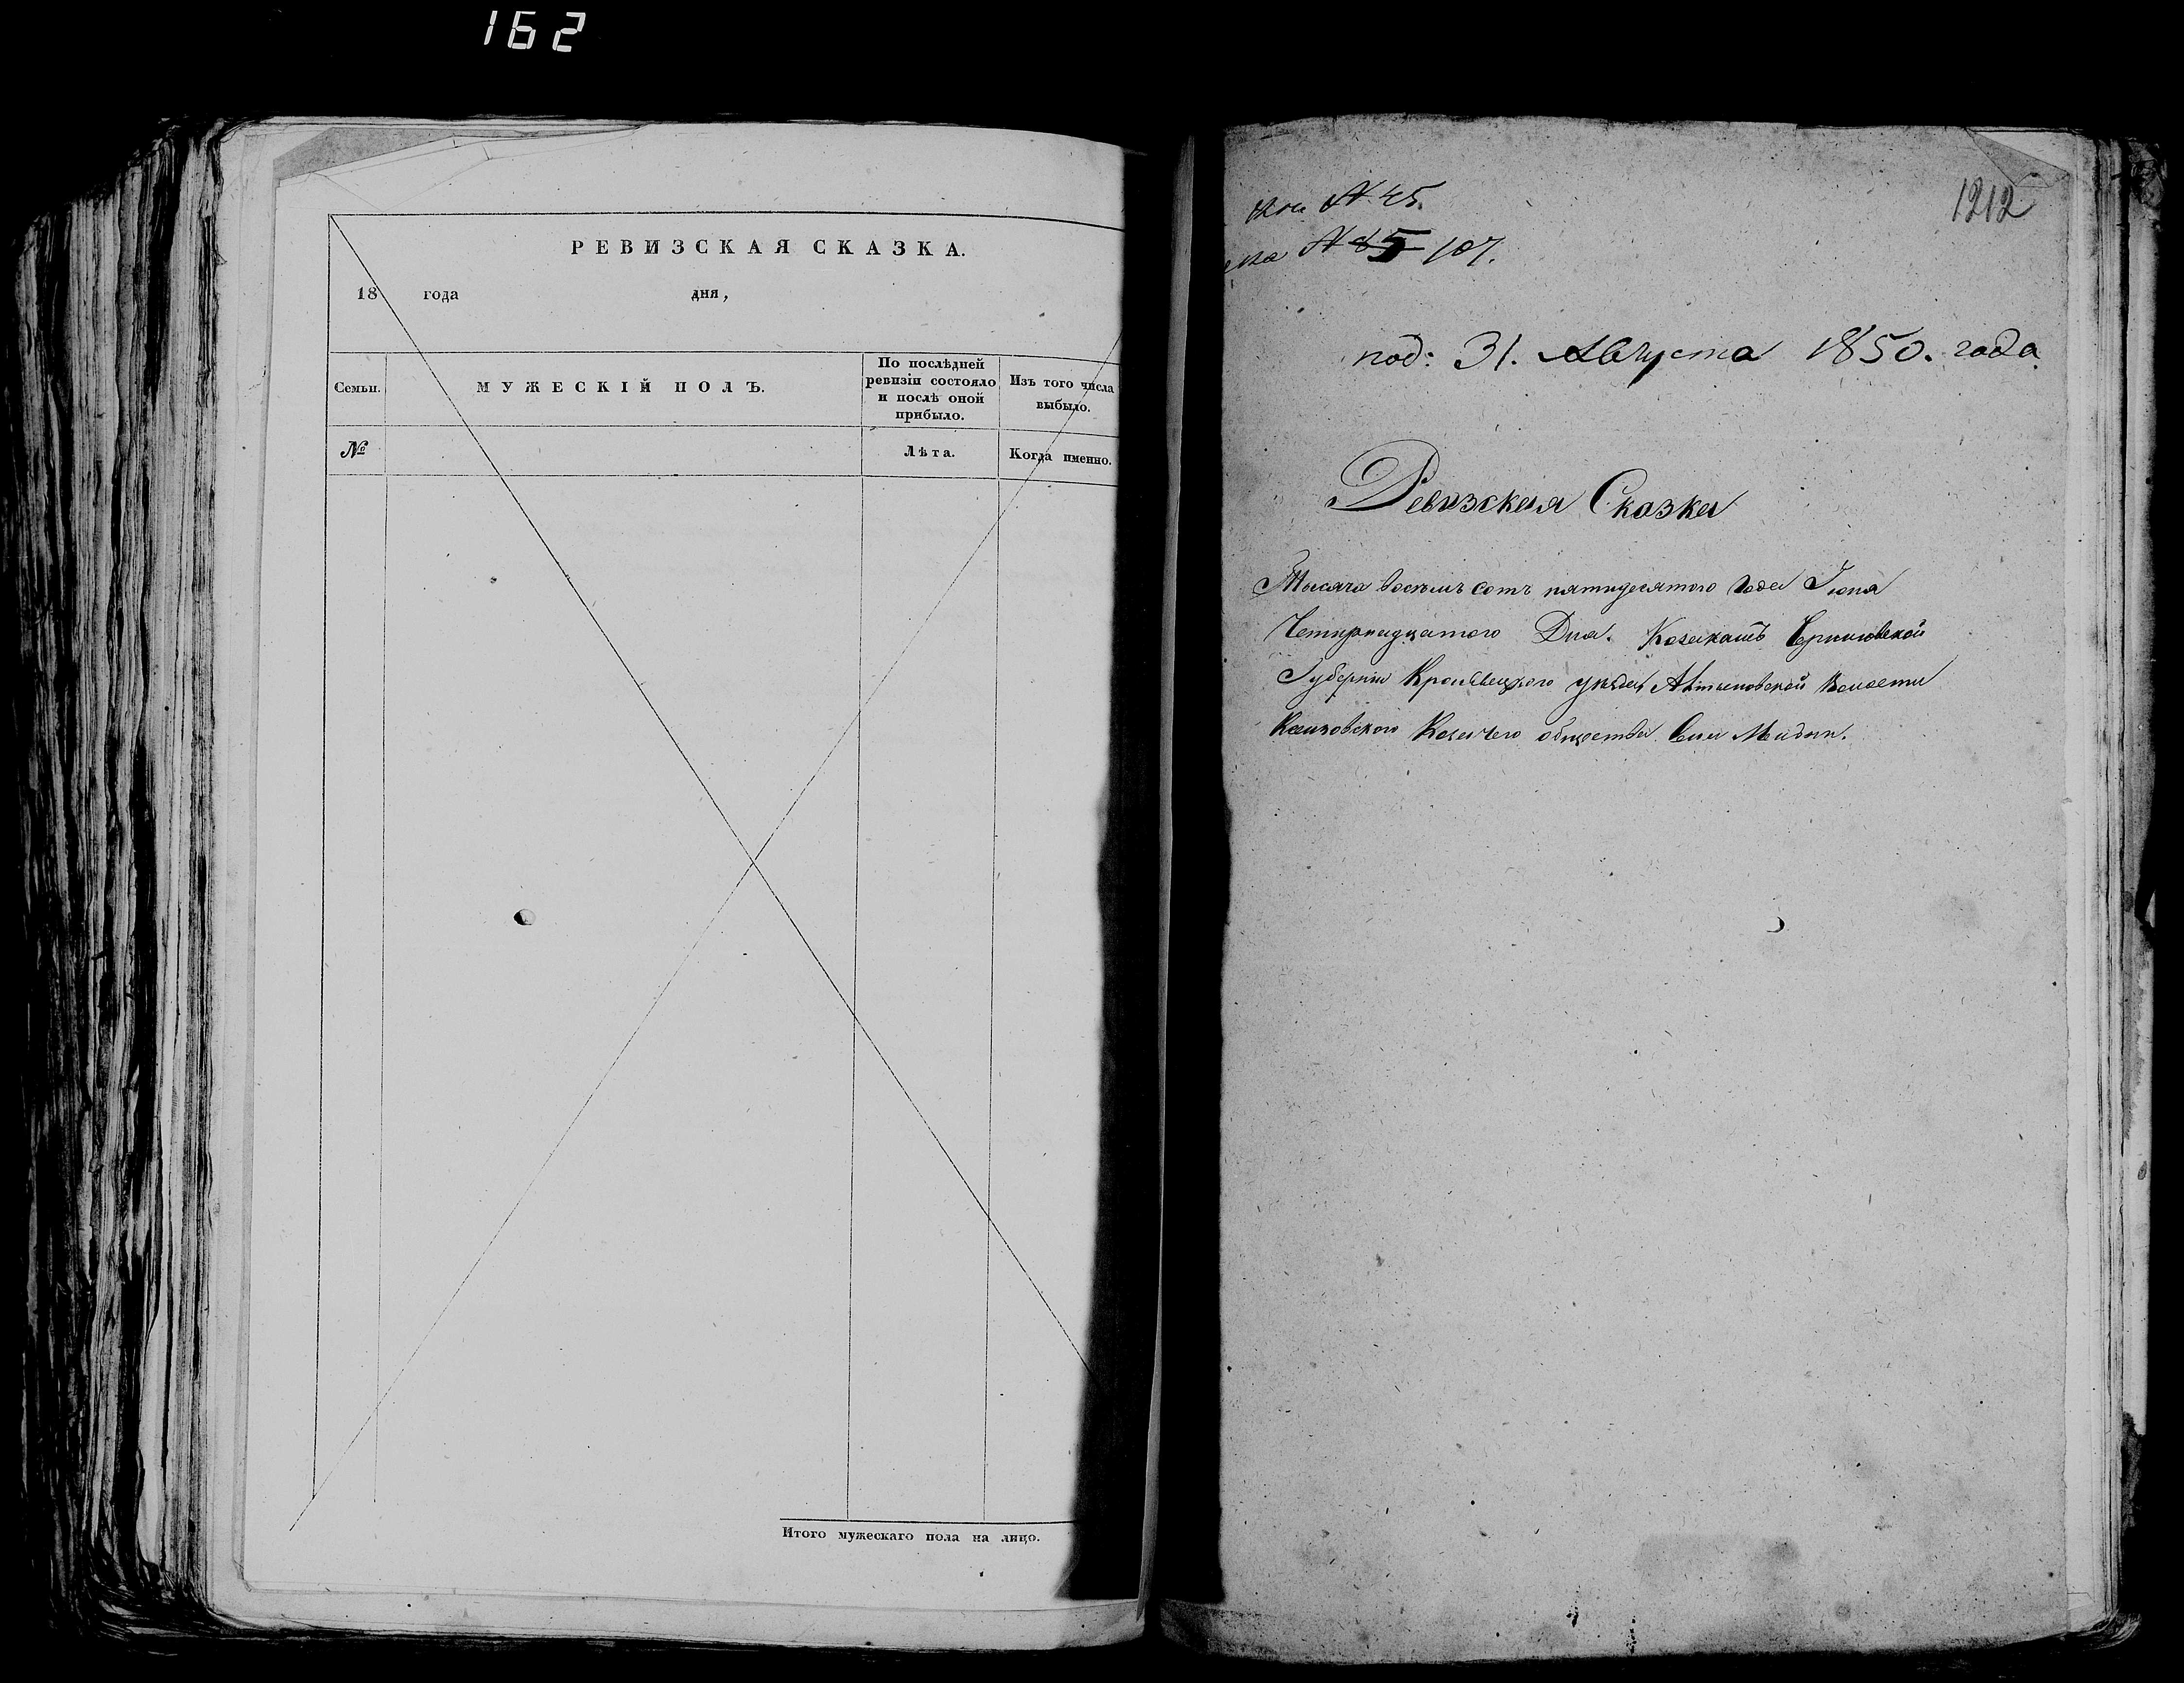 162
РЕВИЗСКАЯ СКАЗКА.
18 года дня,
Семьи.
МУЖЕСКІЙ ПОЛЪ.
По послѣдней
ревизіи состояло
и послѣ оной
прибыло.
Изъ того числа
выбыло.
№
Лѣта.
Когда именно.
Итого мужескаго пола на лицо.
1212
N 45.
N 85 107.
под: 31. Августа 1850. года
Ревизская Сказка
Тысяча восемь сотъ пятидесятого Года Іюня
Четирнадцатого Дня. Козакамъ Черниговской
Губерніи Кролевецкого уѣзда, Алтыновской Волости
Козачего общества Села